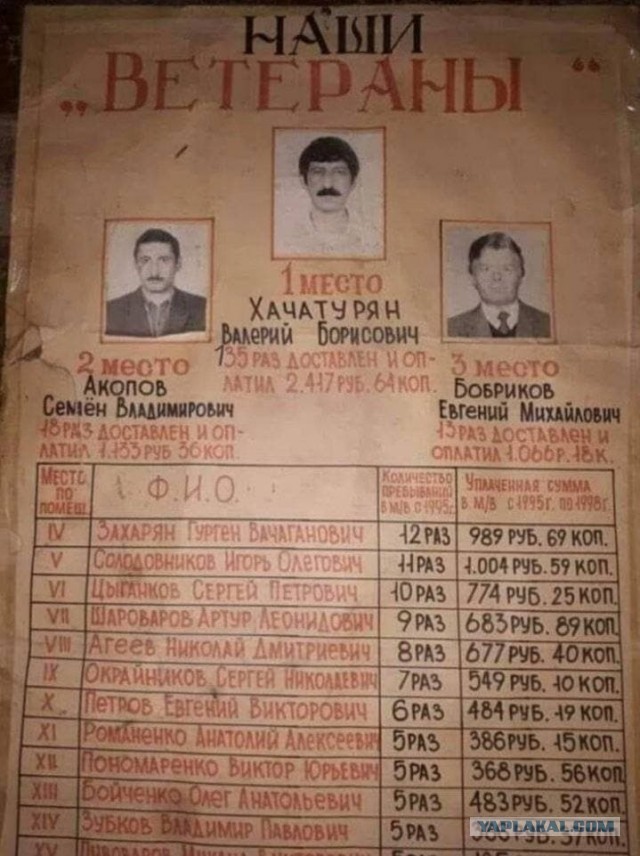 НАШИ
„ВЕТЕРАНЫ“
1 МЕСТО
ХАЧАТУРЯН
ВАЛЕРИЙ БОРИСОВИЧ
135 РАЗ ДОСТАВЛЕН И ОП-
ЛАТИЛ 2.417 РУБ. 64 КОП.
2 МЕСТО
АКОПОВ
СЕМЁН ВЛАДИМИРОВИЧ
РАЗ ДОСТАВЛЕН И ОП-
ЛАТИЛ 1.133 РУБ 36 КОП.
3 МЕСТО
БОБРИКОВ
ЕВГЕНИЙ МИХАЙЛОВИЧ
13 РАЗ ДОСТАВЛЕН И
ОПЛАТИЛ 1.066 Р. 18 К.
МЕСТО ПО ПОМЕЩ. Ф.И.О. КОЛИЧЕСТВО ПРЕБЫВАНИЙ В М/В С 1995г. УПЛАЧЕННАЯ СУММА В М/В С 1995г. ПО 1998г.
IV ЗАХАРЯН ГУРГЕН ВАЧАГАНОВИЧ 12 РАЗ 989 РУБ. 69 КОП.
V СОЛОДОВНИКОВ ИГОРЬ ОЛЕГОВИЧ 11 РАЗ 1.004 РУБ. 59 КОП.
VI ЦЫГАНКОВ СЕРГЕЙ ПЕТРОВИЧ 10 РАЗ 774 РУБ. 25 КОП.
VII ШАРОВАРОВ АРТУР ЛЕОНИДОВИЧ 9 РАЗ 683 РУБ. 89 КОП.
VIII АГЕЕВ НИКОЛАЙ ДМИТРИЕВИЧ 8 РАЗ 677 РУБ. 40 КОП.
IX ОКРАЙНИКОВ СЕРГЕЙ НИКОЛАЕВИЧ 7 РАЗ 549 РУБ. 10 КОП.
X ПЕТРОВ ЕВГЕНИЙ ВИКТОРОВИЧ 6 РАЗ 484 РУБ. 19 КОП.
XI РОМАНЕНКО АНАТОЛИЙ АЛЕКСЕЕВИЧ 5 РАЗ 386 РУБ. 15 КОП.
XII ПОНОМАРЕНКО ВИКТОР ЮРЬЕВИЧ 5 РАЗ 368 РУБ. 56 КОП
XIII БОЙЧЕНКО ОЛЕГ АНАТОЛЬЕВИЧ 5 РАЗ 483 РУБ. 52 КОП.
XIV ЗУБКОВ ВЛАДИМИР ПАВЛОВИЧ 5 РАЗ
YAPLAKAL.COM
XV